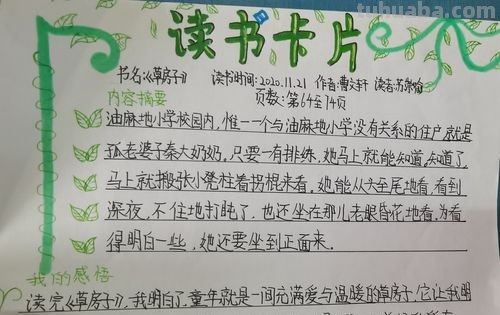 tubuaba.com
读书卡片
书名:《草房子》 读书时间:2020.11.21 作者:曹文轩 读者:苏
页数:第64至74页
内容摘要
油麻地小学校园内,惟一一个与油麻地小学没有关系的住户就是
孤老婆子秦大奶奶,只要一有排练,她马上就能知道,知道了,
马上就搬张小凳拄着拐棍来看,她能从头至尾地看,看到
深夜,不住地打盹了,也还坐在那儿老眼昏花地看,为看
得明白一些,她还要坐到正面来.
我的感悟
读完《草房子》,我明白了,童年就是一间充满爱与温暖的草房子,它让我明